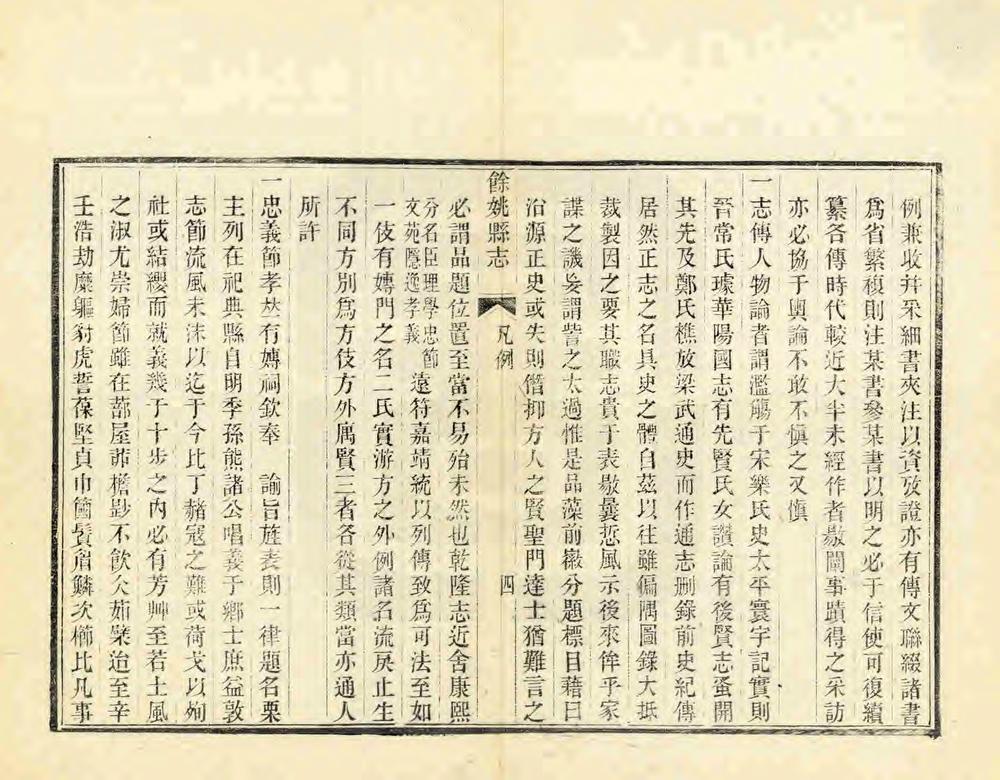 例兼收幷采細書夾注以資攷證亦有傳文聯綴諸書
爲省繁複則注某書參某書以明之必于信使可復續
纂各傳時代較近大半未經作者敭闡事蹟得之采訪
亦必協于輿論不敢不愼之又愼
一志傳人物論者謂濫觴于宋樂氏史太平寰宇記實則
晉常氏璩華陽國志有先賢氏女讚論有後賢志蚤開
其先及鄭氏樵放梁武通史而作通志刪錄前史紀傳
居然正志之名具史之體自茲以往雖偏隅圖錄大抵
裁製因之要其職志貴于表敭曩悊風示後來侔乎家
諜之譏妄謂訾之太過惟是品藻前徽分題標目藉曰
㳂源正史或失則僭抑方人之賢聖門達士猶難言之
餘姚縣志
凡例
四
必謂品題位置至當不易殆未然也乾隆志近舍康熙
分名臣理學忠節
文苑隱逸孝義
遠符嘉靖統以列傳致爲可法至如
一伎有嫥門之名二氏實游方之外例諸名流戾止生
不同方別爲方伎方外寓賢三者各從其類當亦通人
所許
一忠義節孝𠀤有嫥祠欽奉
諭旨旌表則一律題名栗
主列在祀典縣自明季孫熊諸公唱義于鄉士庶益敦
志節流風未沬以迄于今比丁赭寇之難或荷戈以殉
社或結纓而就義幾于十步之內必有芳艸至若士風
之淑尤崇婦節雖在蔀屋茆檐尟不飮仌茹檗迨至辛
壬浩劫糜軀豺虎誓葆堅貞巾幗鬢眉鱗次櫛比凡事